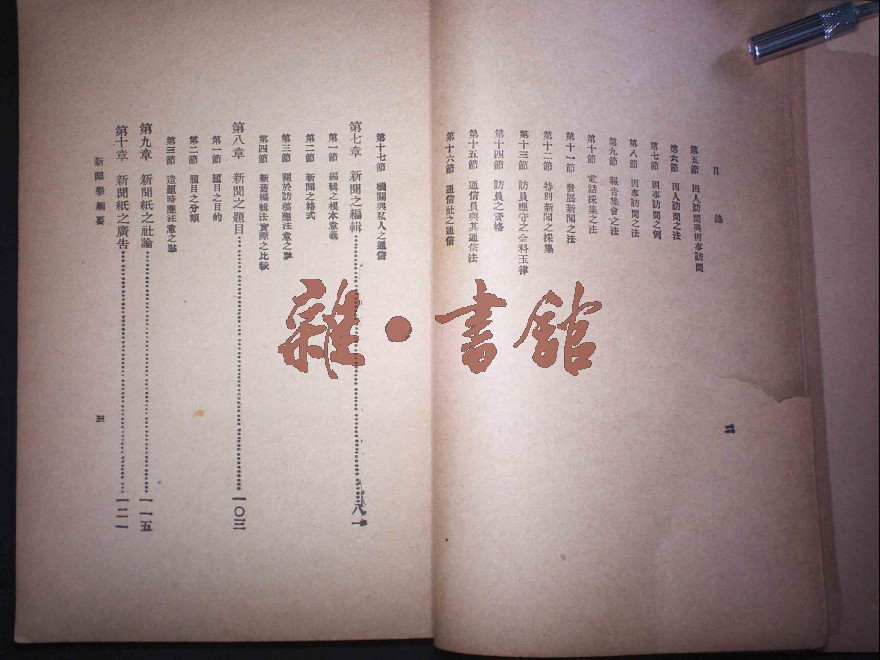 目錄
第五節 因人訪問與因事訪問
第六節 因人訪問之法
第七節 因事訪問之例
第八節 因事訪問之法
第九節 報告集會之法
第十節 電話採集之法
第十一節 發展新聞之法
第十二節 特別新聞之採集
第十三節 訪員應守之金科玉律
第十四節 訪員之資格
第十五節 通信員與其通信法
第十六節 通信社之通信
二
第十七節 機關與私人之通信
第七章 新聞之編輯……八一
第一節 編輯之根本意義
第二節 新聞之格式
第三節 關於訪稿應注意之點
第四節 新舊編輯法實際之比較
第八章 新聞之題目……一〇三
第一節 題目之目的
第二節 題目之分類
第三節 造題時應注意之點
第九章 新聞紙之社論……一一五
第十章 新聞紙之廣告……一二一
新聞學綱要
三
雜·書館